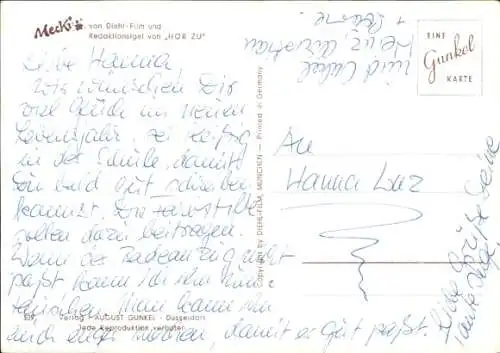 Mecki
von Diehl-Film und
Redaktionsigel von „HÖR ZU"
Liebe Hanna,
wir wünschen Dir
viel Glück im neuen
Lebensjahr. Sei fleißig
in der Schule, damit
Du bald gut schreiben
kannst. Die
sollen dazu beitragen.
Wenn der Badeanzug nicht
paßt kann ich ihn um
tauschen. Man kann ihn
auch enger machen, damit er gut paßt.
Liebe Grüße Deine
Tante
und Onkel
EINE
Gunkel
KARTE
An
Hanna
Copyright by DIEHL-FILM, MÜNCHEN — Printed in Germany
Verlag AUGUST GUNKEL - Düsseldorf
Jede Reproduktion verboten